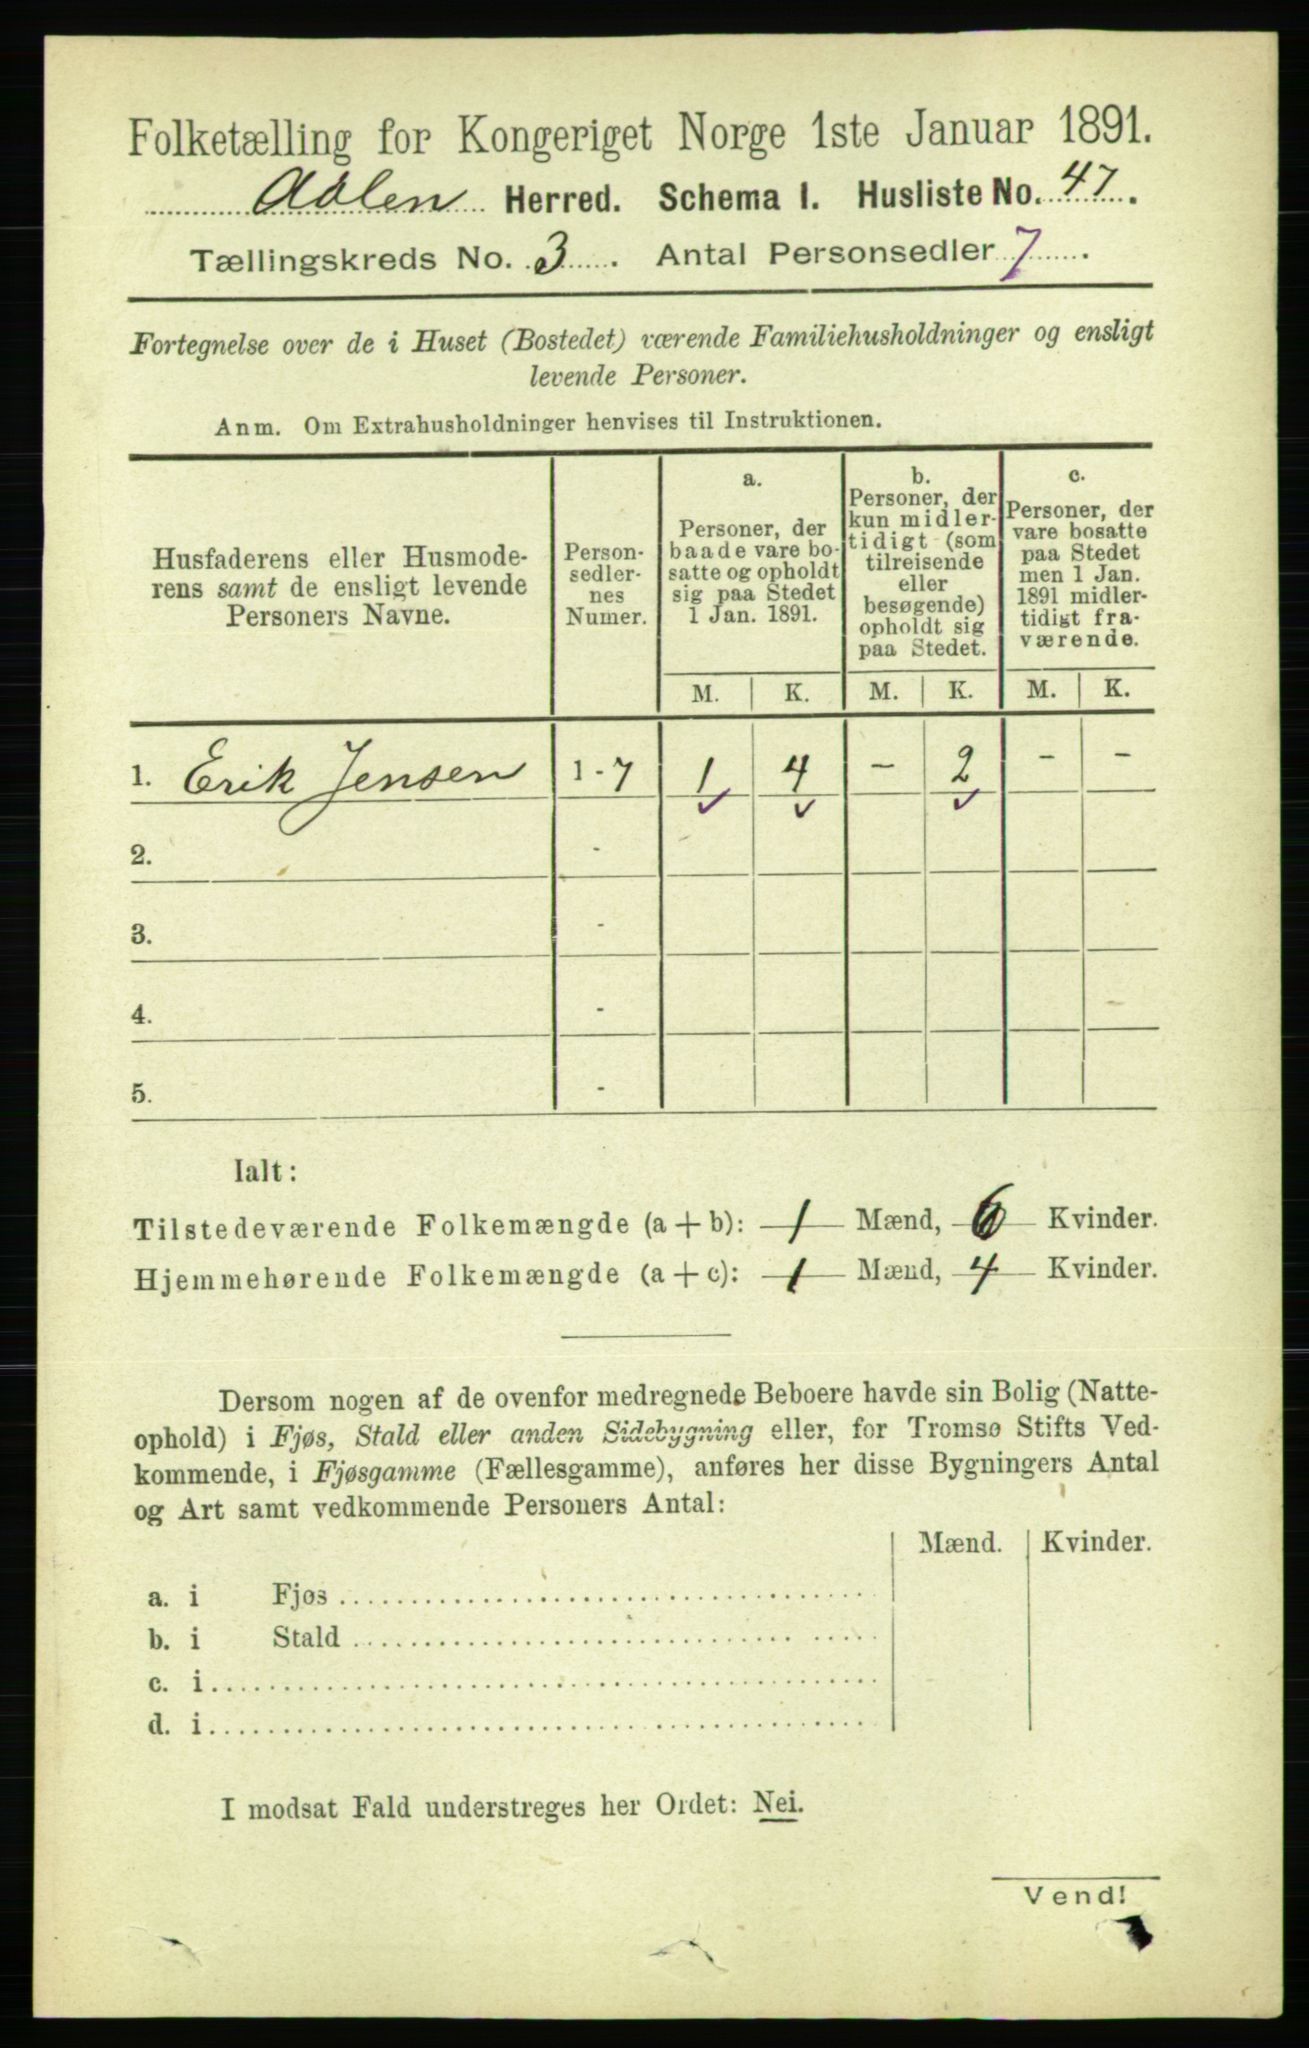 Folketælling for Kongeriget Norge 1ste Januar 1891.
Aalen Herred. Schema 1. Husliste No. 47.
Tællingskreds No. 3. Antal Personsedler 7.
Fortegnelse over de i Huset (Bostedet) værende Familiehusholdninger og ensligt
levende Personer.
Anm. Om Extrahusholdninger henvises til Instruktionen.
Husfaderens eller Husmode-
rens samt de ensligt levende
Personers Navne.
Person-
sedler-
nes
Numer.
a.
Personer, der
baade vare bo-
satte og opholdt
sig paa Stedet
1 Jan. 1891.
b.
Personer, der
kun midler-
tidigt (som
tilreisende
eller
besøgende)
opholdt sig
paa Stedet.
c.
Personer, der
vare bosatte
paa Stedet
men 1 Jan.
1891 midler-
tidigt fra-
værende.
M. K. M. K. M. K.
1. Erik Jensen 1 - 7 1 4 - 2 - -
2. -
3. -
4. -
5. -
Ialt:
Tilstedeværende Folkemængde (a + b): 1 Mænd, 6 Kvinder.
Hjemmehørende Folkemængde (a + c): 1 Mænd, 4 Kvinder.
Dersom nogen af de ovenfor medregnede Beboere havde sin Bolig (Natte-
ophold) i Fjøs, Stald eller anden Sidebygning eller, for Tromsø Stifts Ved-
kommende, i Fjøsgamme (Fællesgamme), anføres her disse Bygningers Antal
og Art samt vedkommende Personers Antal:
Mænd. Kvinder.
a. i Fjøs
b. i Stald
c. i
d. i
I modsat Fald understreges her Ordet: Nei.
Vend!